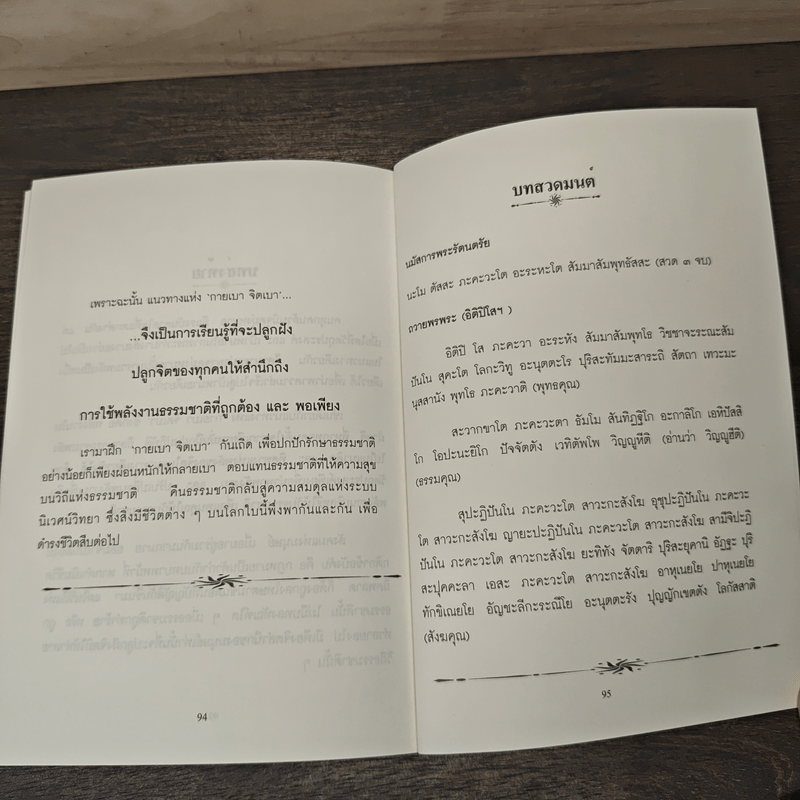 เพราะฉะนั้น แนวทางแห่ง ‘กายเบา จิตเบา’...
...จึงเป็นการเรียนรู้ที่จะปลูกฝัง
ปลูกจิตของทุกคนให้สำนึกถึง
การใช้พลังงานธรรมชาติที่ถูกต้อง และ พอเพียง
เรามาฝึก ‘กายเบา จิตเบา’ กันเถิด เพื่อปกปักรักษาธรรมชาติ
อย่างน้อยก็เพียงผ่อนหนักให้กลายเบา ตอบแทนธรรมชาติที่ให้ความสุข
บนวิถีแห่งธรรมชาติ คืนธรรมชาติกลับสู่ความสมดุลแห่งระบบ
นิเวศน์วิทยา ซึ่งสิ่งมีชีวิตต่าง ๆ บนโลกใบนี้พึ่งพากันและกัน เพื่อ
ดำรงชีวิตสืบต่อไป
94
บทสวดมนต์
นมัสการพระรัตนตรัย
นะโม ตัสสะ ภะคะวะโต อะระหะโต สัมมาสัมพุทธัสสะ (สวด ๓ จบ)
ถวายพรพระ (อิติปิโสฯ )
อิติปิ โส ภะคะวา อะระหัง สัมมาสัมพุทโธ วิชชาจะระณะสัม
ปันโน สุคะโต โลกะวิทู อะนุตตะโร ปุริสะทัมมะสาระถิ สัตถา เทวะมะ
นุสสานัง พุทโธ ภะคะวาติ (พุทธคุณ)
สะวากขาโต ภะคะวะตา ธัมโม สันทิฏฐิโก อะกาลิโก เอหิปัสสิ
โก โอปะนะยิโก ปัจจัตตัง เวทิตัพโพ วิญญูหีติ (อ่านว่า วิญญูฮีติ)
(ธรรมคุณ)
สุปะฏิปันโน ภะคะวะโต สาวะกะสังโฆ อุชุปะฏิปันโน ภะคะวะ
โต สาวะกะสังโฆ ญายะปะฏิปันโน ภะคะวะโต สาวะกะสังโฆ สามีจิปะฏิ
ปันโน ภะคะวะโต สาวะกะสังโฆ ยะทิทัง จัตตาริ ปุริสะยุคานิ อัฏฐะ ปุริ
สะปุคคะลา เอสะ ภะคะวะโต สาวะกะสังโฆ อาหุเนยโย ปาหุเนยโย
ทักขิเณยโย อัญชะลีกะระณีโย อะนุตตะรัง ปุญญักเขตตัง โลกัสสาติ
(สังฆคุณ)
95